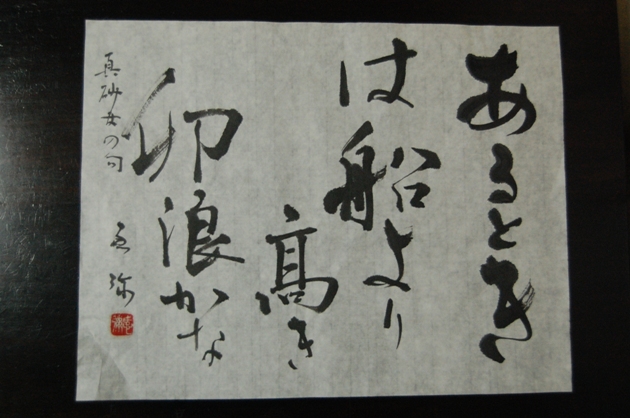 あるとき
は船より
高き
卯浪かな
真砂女の句